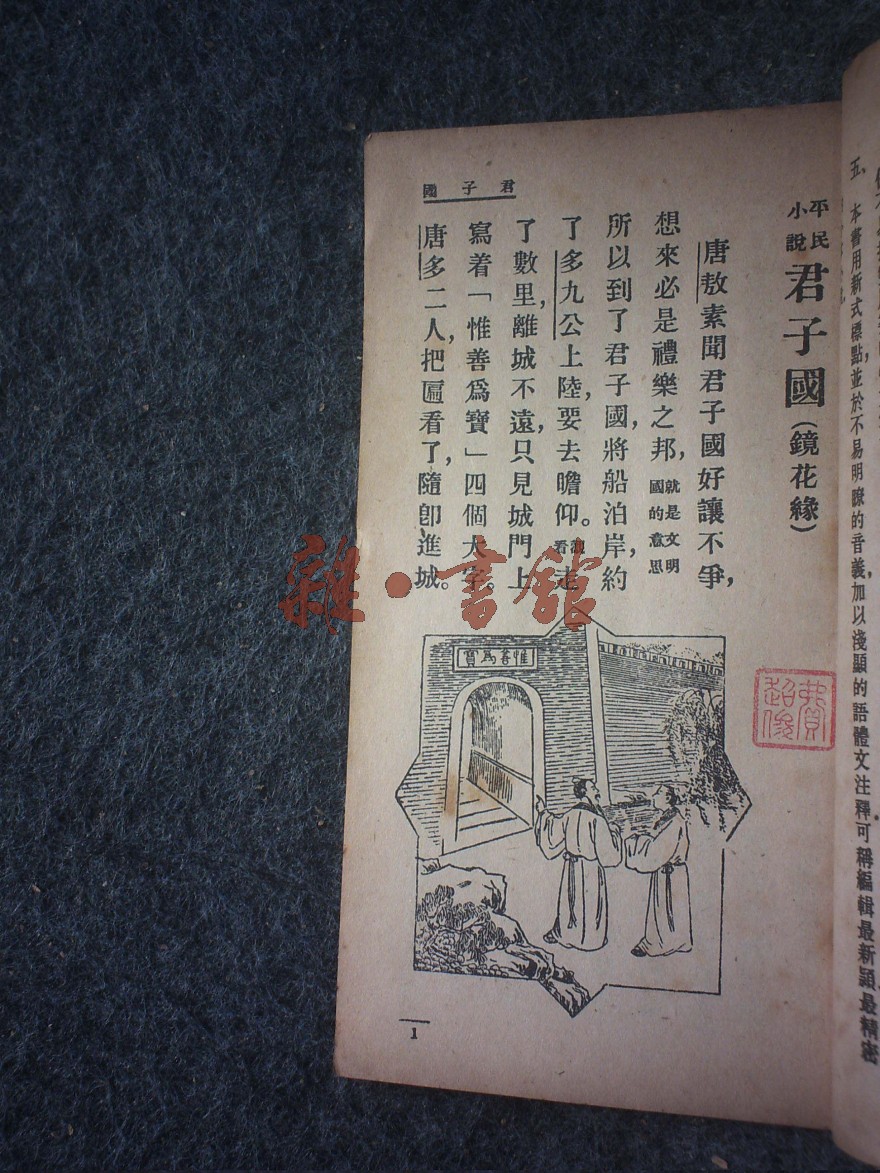 五、本書用新式標點，並於不易明瞭的音義，加以淺顯的語體文注釋可稱編輯最新穎最精密
平民小說
君子國（鏡花緣）
唐敖素聞君子國好讓不爭，
想來必是禮樂之邦，就是文明國的意思
所以到了君子國，將船泊岸，約
了多九公上陸，要去瞻仰。走
了數里，離城不遠，只見城門上
寫着「惟善爲寶」四個大字。
唐多二人，把匾看了，隨卽進城。
君子國
惟善爲寶
1
雜·書館